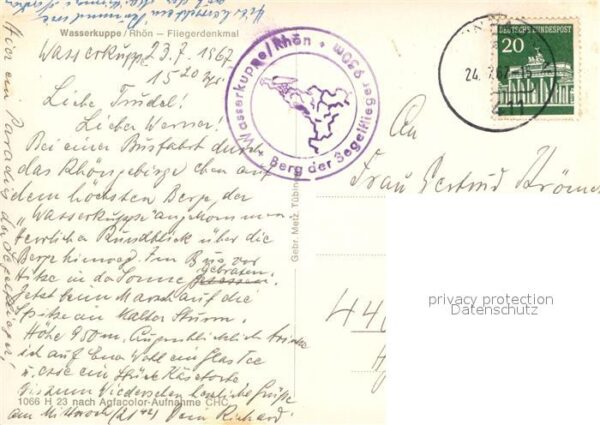 Wasserkuppe/Rhön — Fliegerdenkmal
Wasserkuppe 23.7.1967
15 20 Uhr
Liebe Trudel!
Lieber Werner!
Bei einer Busfahrt durch
das Rhöngebirge eben auf
dem höchsten Berge, der
"Wasserkuppe" angekommen
Herrlicher Rundblick über die
Berge hinweg. Im Bus vor
Hitze in der Sonne gebraten.
Jetzt beim Marsch auf die
Spitze ein kalter Sturm.
Höhe 950 m. Augenblicklich trinke
ich auf Euer Wohl ein Glas Tee
u. esse ein Stück Käsetorte
Bis zum Wiedersehen herzliche Grüße
am Mittwoch (21 42) Dein Richard.
1066 H 23 nach Agfacolor-Aufnahme CHC
Hier ein Paradies der Segelflieger!
Gebr. Metz, Tübin
Wasserkuppe/Rhön + 950m
+ Berg der Segelflieger
24.7.67
DEUTSCHE BUNDESPOST
20
An
Frau Gertrud Krömer
44
privacy protection
Datenschutz